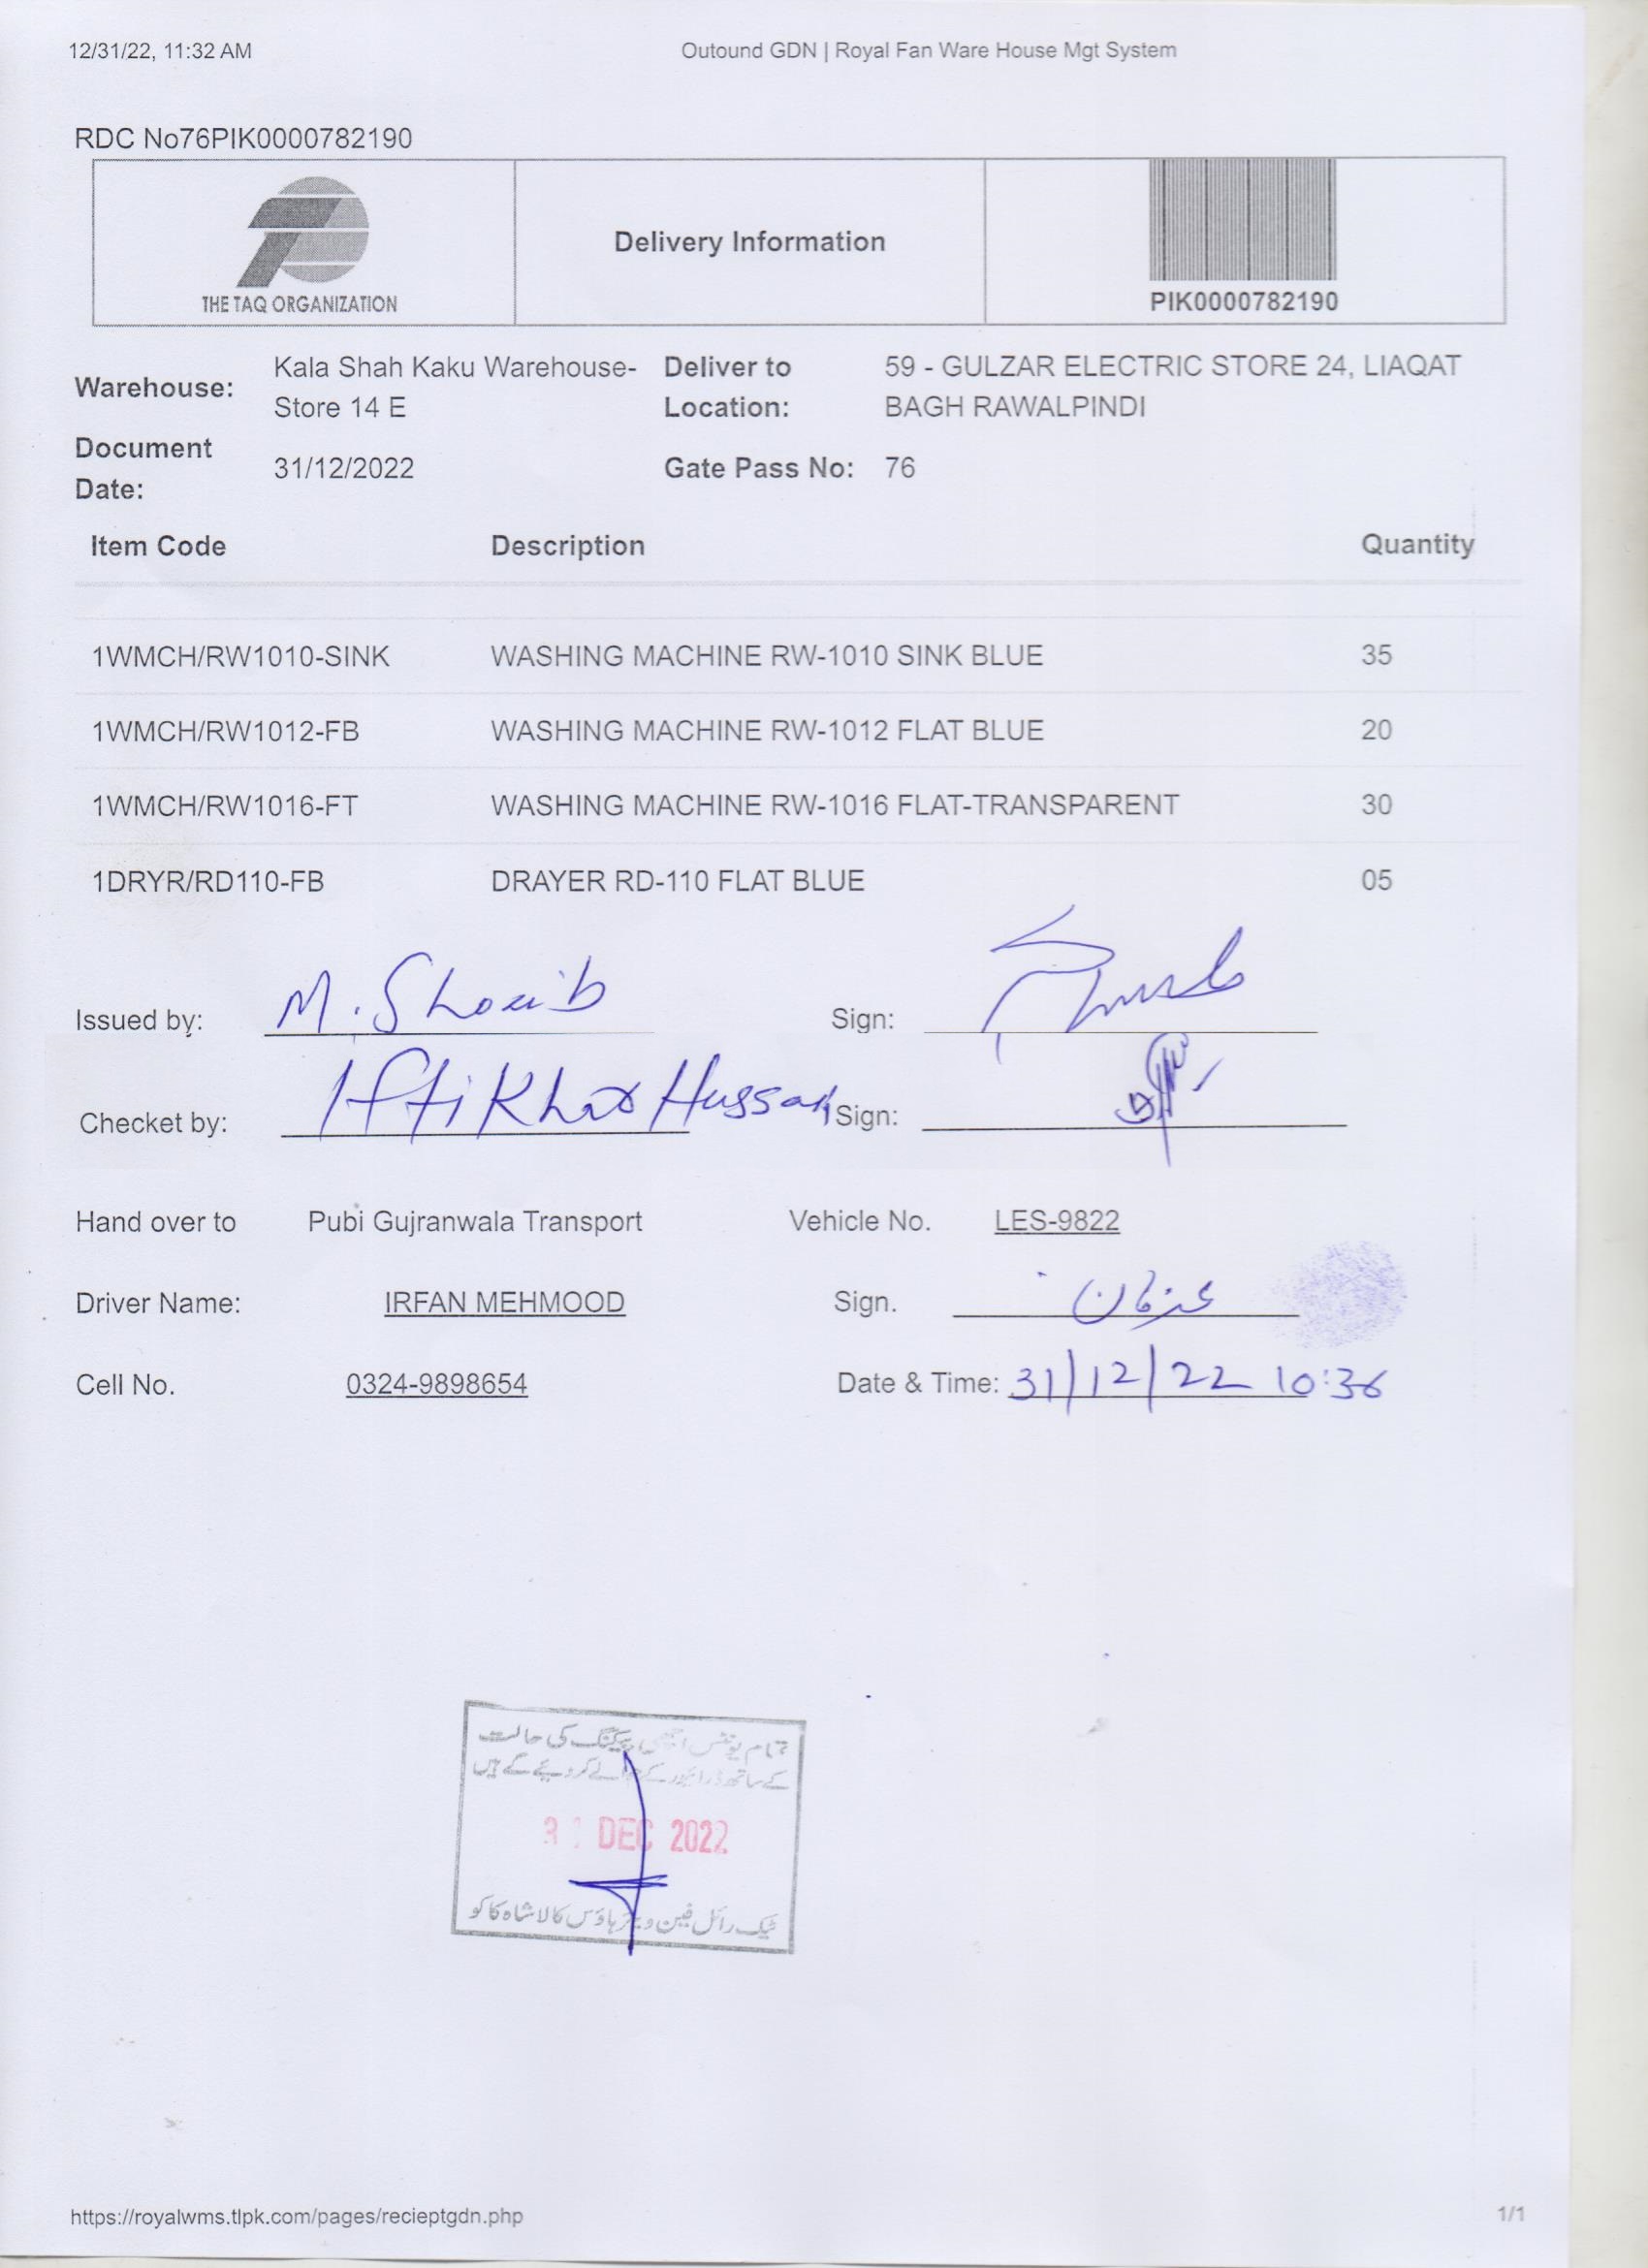 12/31/22, 11:32 AM Outound GDN | Royal Fan Ware House Mgt System
RDC No76PIK0000782190
THE TAQ ORGANIZATION
Delivery Information
PIK0000782190
Warehouse: Kala Shah Kaku Warehouse-Store 14 E
Deliver to Location: 59 - GULZAR ELECTRIC STORE 24, LIAQAT BAGH RAWALPINDI
Document Date: 31/12/2022
Gate Pass No: 76
Item Code Description Quantity
1WMCH/RW1010-SINK WASHING MACHINE RW-1010 SINK BLUE 35
1WMCH/RW1012-FB WASHING MACHINE RW-1012 FLAT BLUE 20
1WMCH/RW1016-FT WASHING MACHINE RW-1016 FLAT-TRANSPARENT 30
1DRYR/RD110-FB DRAYER RD-110 FLAT BLUE 05
Issued by: M. Shoaib Sign:
Checket by: Iftikhar Hussain Sign:
Hand over to Pubi Gujranwala Transport Vehicle No. LES-9822
Driver Name: IRFAN MEHMOOD Sign. عرفان
Cell No. 0324-9898654 Date & Time: 31/12/22 10:36
تمام یونٹس اچھی پیکنگ کی حالت
کے ساتھ ڈرائیور کے حوالے کر دیئے گئے ہیں
31 DEC 2022
ٹیک رائل فین ویئر ہاؤس کالا شاہ کاکو
https://royalwms.tlpk.com/pages/recieptgdn.php 1/1